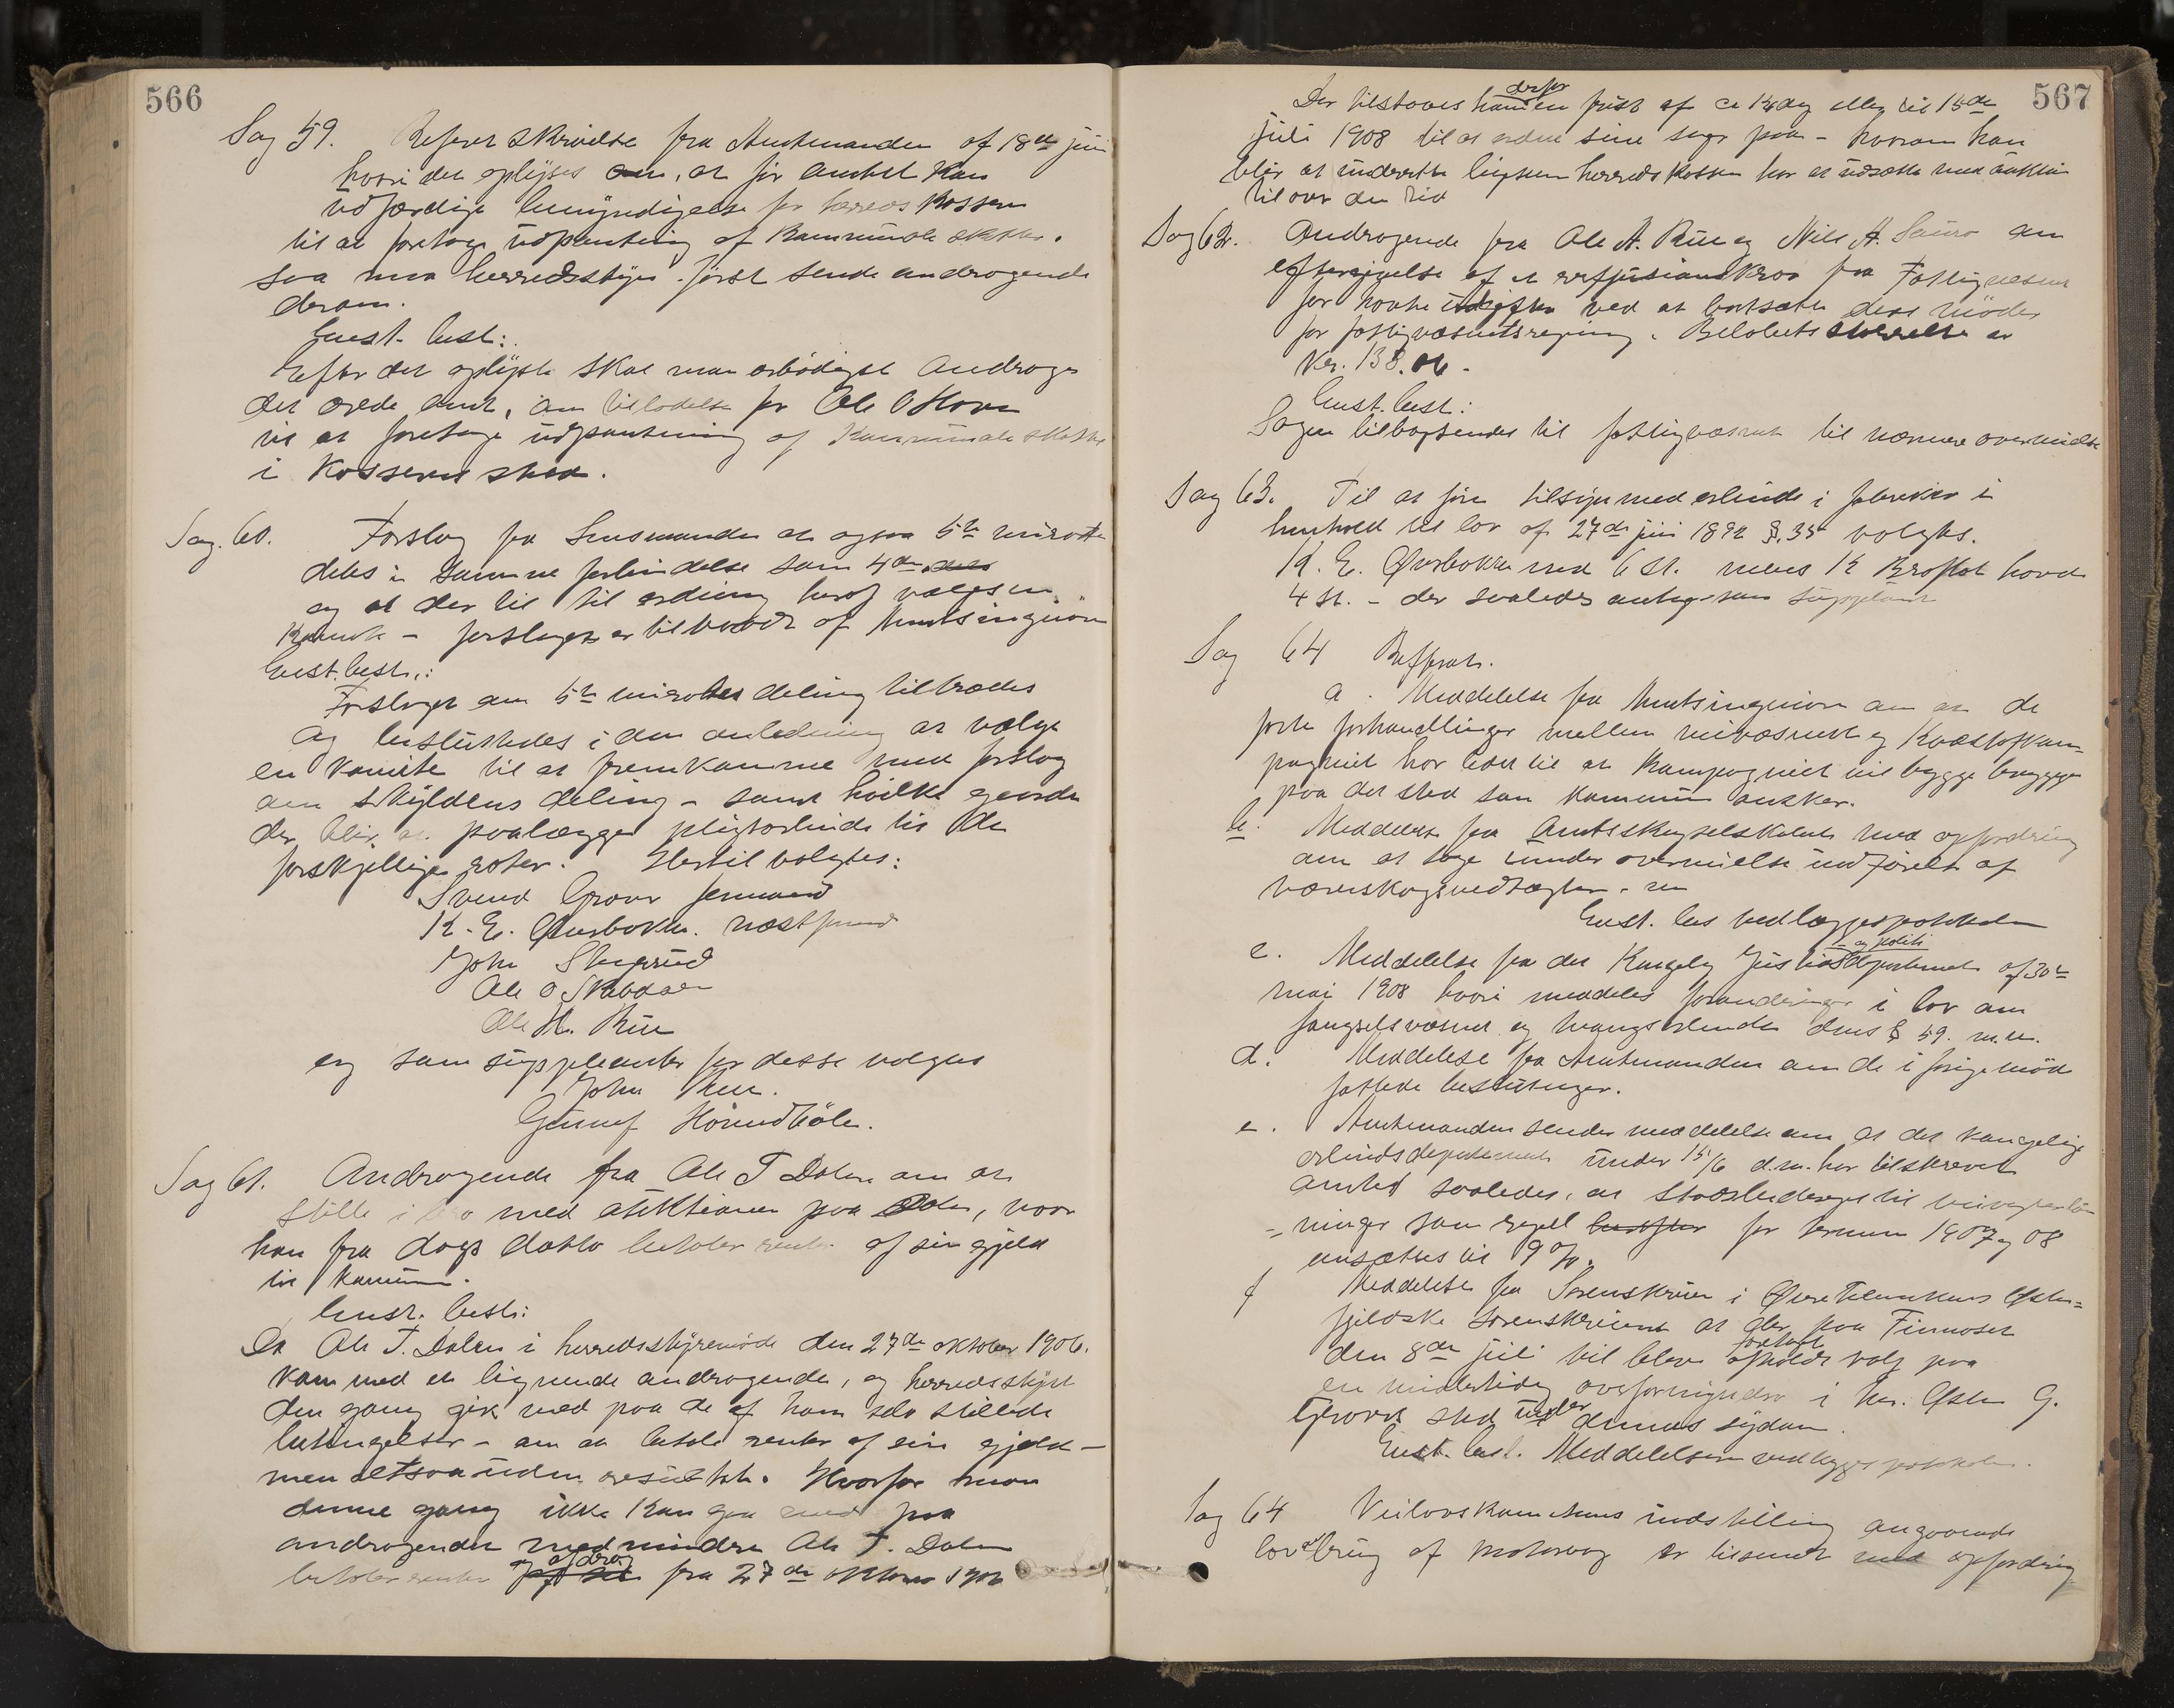 566
Sag 59. Referert skrivelse fra Amtmanden af 18de juni
hvori det oplyses om, at før amtet kan
udfærdige bemyndigelse for herredskassen
til at foretage udpanting af kommunale skatter.
saa maa herredsstyre først sende andragende
derom.
Enst. besl:
Efter det oplyste skal man ærbødigst andrage
det ærede amt, om tilladelse for Ole O Hovn
til at foretage udpantning af kommunale skatter
i kasserens sted.
Sag. 60. Forslag fra Lensmanden at ogsaa 5te
deles i samme forbindelse som 4de
og at der til til ordning heraf vælges en
Komite – forslaget er tiltraadt af Amtsingeniør
Enst. besl.:
Forslaget om 5te deling tiltrædes
og besluttedes i den anledning at vælge
en komite til at fremkomme med forslag
om skyldens deling – samt hvilke gaarde
der blir at paalægge pligtarbeide til de
forskjellige roter. Hertil valgtes:
Svend Groven formand
K. E. Øverbokke. næstformand
John
Ole O Skabdalen
Ole H. Bue
og som suppleanter for desse valgtes
John
Gunnuf
Sag 61. Andragende fra Ole T Dalen om at
stille i bero med auktionen paa Dalen, naar
han fra dags dato betaler renter af sin gjeld
til kommunen.
Enst. besl:
Da Ole T. Dalen i herredsstyremøde den 27de oktober 1906.
kom med et lignende andragende, og herredsstyret
den gang gik med paa de af ham selv stillede
betingelser – om at betale renter af sin gjeld –
men altsaa uden resultat. Hvorfor man
denne gang ikke kan gaa med paa
andragendet medmindre Ole T. Dalen
betaler renter og afdrag fra 27de oktober 1906
567
Der tilstaaes ham derfor en frist af ca 14 dag eller til 15de
juli 1908 til at ordne sine sager paa – hvorom han
blir at underrette ligesom herredskassen har at udsætte med auktion
til over den tid
Sag 62. Andragende fra Ole A. Bue og Nils A. Sauro om
eftergivelse af et refusionskrav fra Fattigvæsnet
for havte udgifter ved at bortsætte deres moder
for fattigvæsnets regning. Beløbets størrelse er
kr. 138.06.
Enst. besl:
Sagen tilbagesendes til fattigvæsnet til nærmere overveielse
Sag 63. Til at føre tilsyn med arbeide i fabriker i
henhold til lov af 27de juni 1892 §. 35 valgtes.
K. E. Øverbokke med 6 st. mens K Broflot havde
4 st. – der saaledes antages som suppleant
Sag 64 Referat.
a. Meddelelse fra Amtsingeniøren om at de
førte forhandlinger mellem veivæsnet og Kvælstofkom-
pagniet har ledet til at kompagniet vil bygge brygge
paa det sted som kommunen ønsker.
b. Meddelelse fra Amtsskogselskabet med opfordring
om at tage under overveielse indførelse af
værnskogsvedtægter.
Enst. bes vedlægges protokolen
c. Meddelelse fra det Kongelig Justits – og politi departement af 30te
mai 1908 hvori meddeles forandringer i lov om
fængselsvæsnet og tvangsarbeide dens § 59. m.m.
d. Meddelelse fra Amtmanden om de i forige møde
fattede beslutninger.
e. Amtmanden sender meddelelse om at det kongelige
arbeidsdepartement under 15/6 d.m. har tilskrevet
Amtet saaledes, at Statsbidraget til
ninger som regel for termin 1907 og 08
ansættes til 9 %.
f Meddelelse fra Sorenskriver i Øvre Telemarkens Østen-
fjeldske sorenskriveri at der paa Finnoset
den 8de juli vil bleve afholdt foretat valg paa
en midlertidig overformynder i hr. Østen G.
Grovas sted under dennes sydom.
Enst. besl. Meddelelsen vedlægges protokolen.
Sag 64 Veilovskomiteens indstilling angaaende
lov af motorvog er tilsendt med opfordring